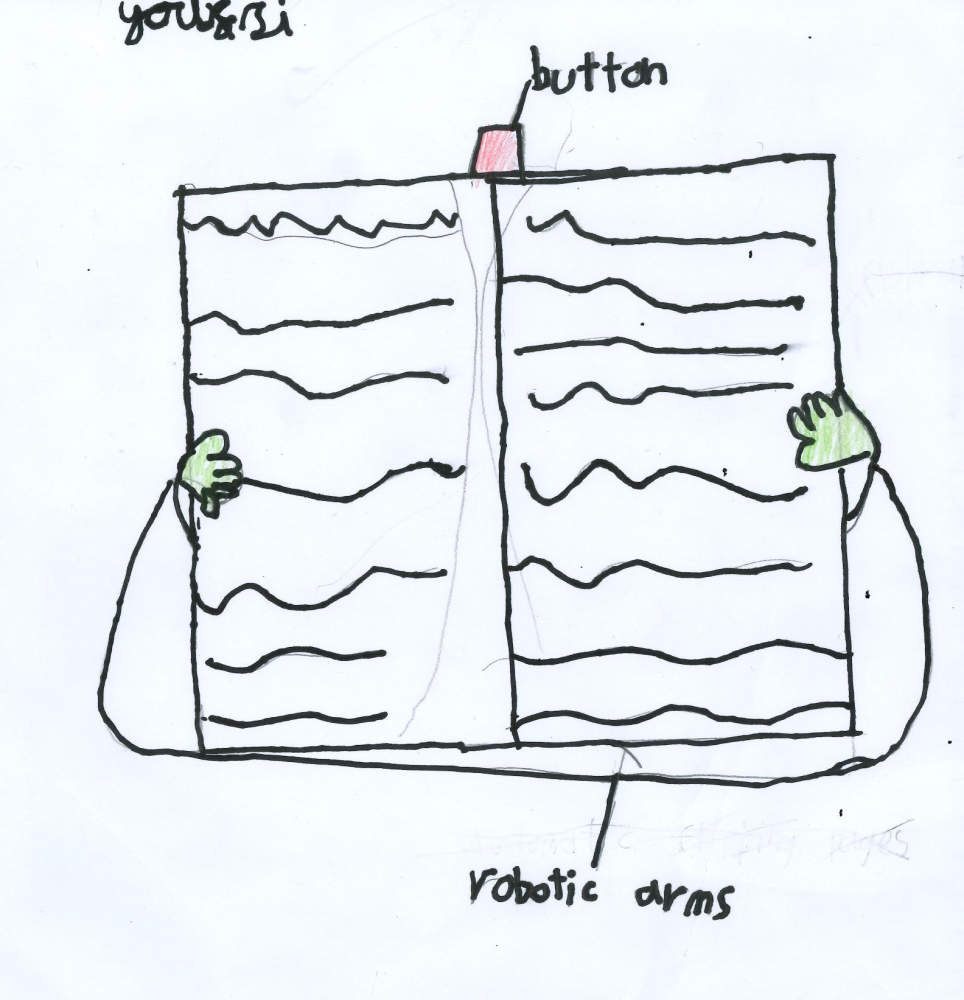 button
robotic arms
automatic flipping pages